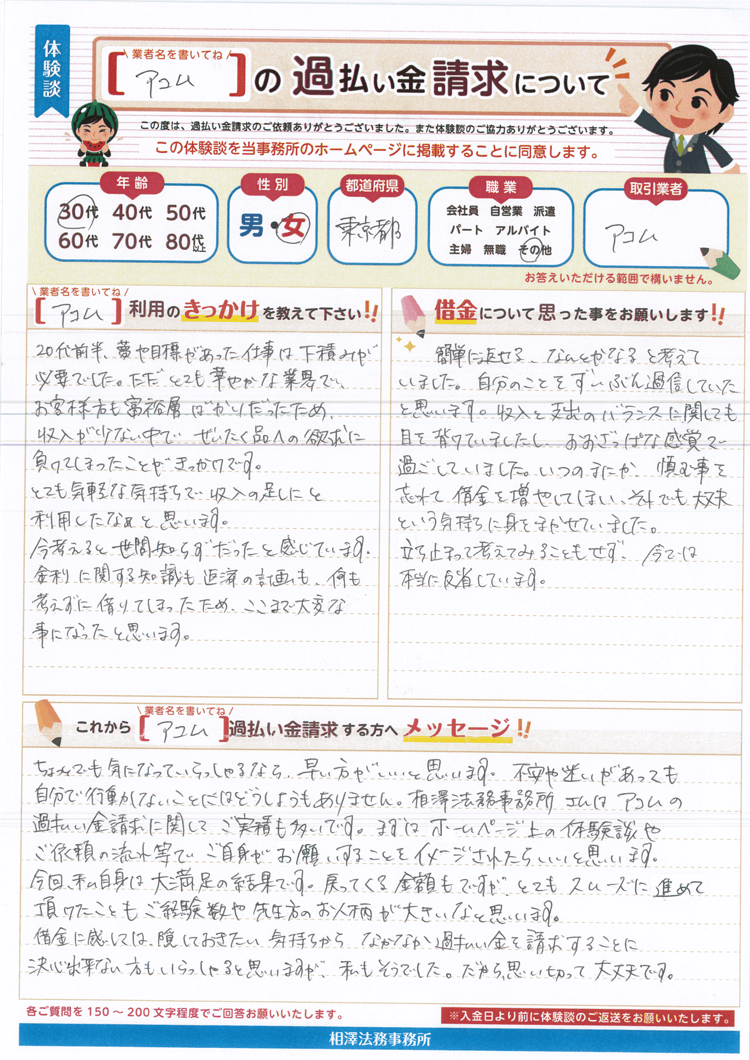 体験談
業者名を書いてね
[アコム]の過払い金請求について
この度は、過払い金請求のご依頼ありがとうございました。また体験談のご協力ありがとうございます。
この体験談を当事務所のホームページに掲載することに同意します。
年齢
30代 40代 50代
60代 70代 80代以上
性別
男・女
都道府県
東京都
職業
会社員 自営業 派遣
パート アルバイト
主婦 無職 その他
取引業者
アコム
お答えいただける範囲で構いません。
業者名を書いてね
[アコム]利用のきっかけを教えて下さい!!
20代前半、夢や目標があった仕事は下積みが
必要でした。ただとても華やかな業界で、
お客様方も富裕層ばかりだったため、
収入が少ない中で ぜいたく品への欲求に
負けてしまったことがきっかけです。
とても気軽な気持ちで収入の足しにと
利用したなぁと思います。
今考えると世間知らずだったと感じています。
金利に関する知識も返済の計画も、何も
考えずに借りてしまったため、ここまで大変な
事になったと思います。
借金について思った事をお願いします!!
簡単に返せる、なんとかなると考えて
いました。自分のことをずいぶん過信していた
と思います。収入と支出のバランスに関しても
目を背けていましたし、おおざっぱな感覚で
過ごしていました。いつのまにか、慎む事を
忘れて借金を増やしてしまい、それでも大丈夫
という気持ちに身をまかせていました。
立ち止まって考えてみることもせず、今では
本当に反省しています。
業者名を書いてね
これから[アコム]過払い金請求する方へメッセージ!!
ちょっとでも気になっていらっしゃるなら、早い方がいいと思います。不安や迷いがあっても
自分で行動しないことにはどうしようもありません。相澤法務事務所さんはアコムの
過払い金請求に関してご実績も多いです。まずはホームページ上の体験談や
ご依頼の流れ等で ご自身がお願いすることをイメージされたらいいと思います。
今回、私自身は大満足の結果です。戻ってくる金額もですが、とてもスムーズに進めて
頂けたこともご経験数や先生方のお人柄が大きいなと思います。
借金に感しては、隠しておきたい気持ちから なかなか過払い金を請求することに
決心出来ない方もいらっしゃると思いますが、私もそうでした。だから、思い切って大丈夫です。
各ご質問を150～200文字程度でご回答お願いいたします。
※入金日より前に体験談のご返送をお願いいたします。
相澤法務事務所